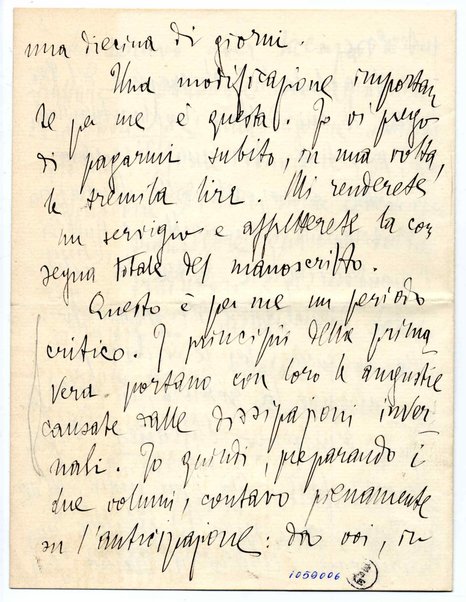 una diecina di giorni.
Una modificazione importan
te per me è questa. Io vi prego
di pagarmi subito, in una volta,
le tremila lire. Mi renderete
un servigio e affretterete la con
segna totale del manoscritto.
Questo è per me un periodo
critico. I principii della prima
vera portano con loro le angustie
causate dalle dissipazioni inver
nali. Io quindi, preparando i
due volumi, contavo pienamente
su l'anticipazione: da voi, in
1059006